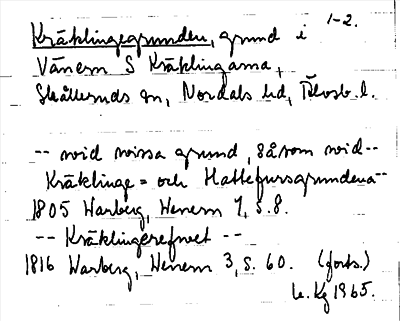 1-2.
Kräklingegrunden, grund i
Vänern S Kräklingarna,
Skålleruds sn, Nordals hd, Älvsb. l.
-- wid wissa grund, såsom wid --
Kräklinge= och Hattefursgrundena --
1805 Warberg, Wenern 1, s. 8.
-- Kräklingerefwet --
1816 Warberg, Wenern 3, s. 60. (forts.)
1965.